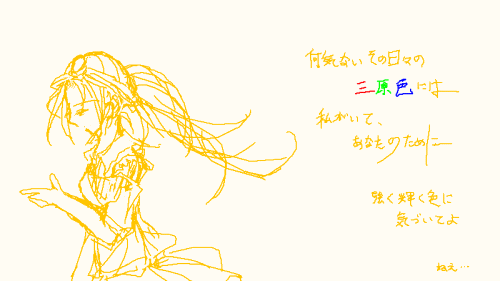 何気ないその日々の
三原色には
私がいて、
あなたのために
強く輝く色に
気づいてよ
ねえ…